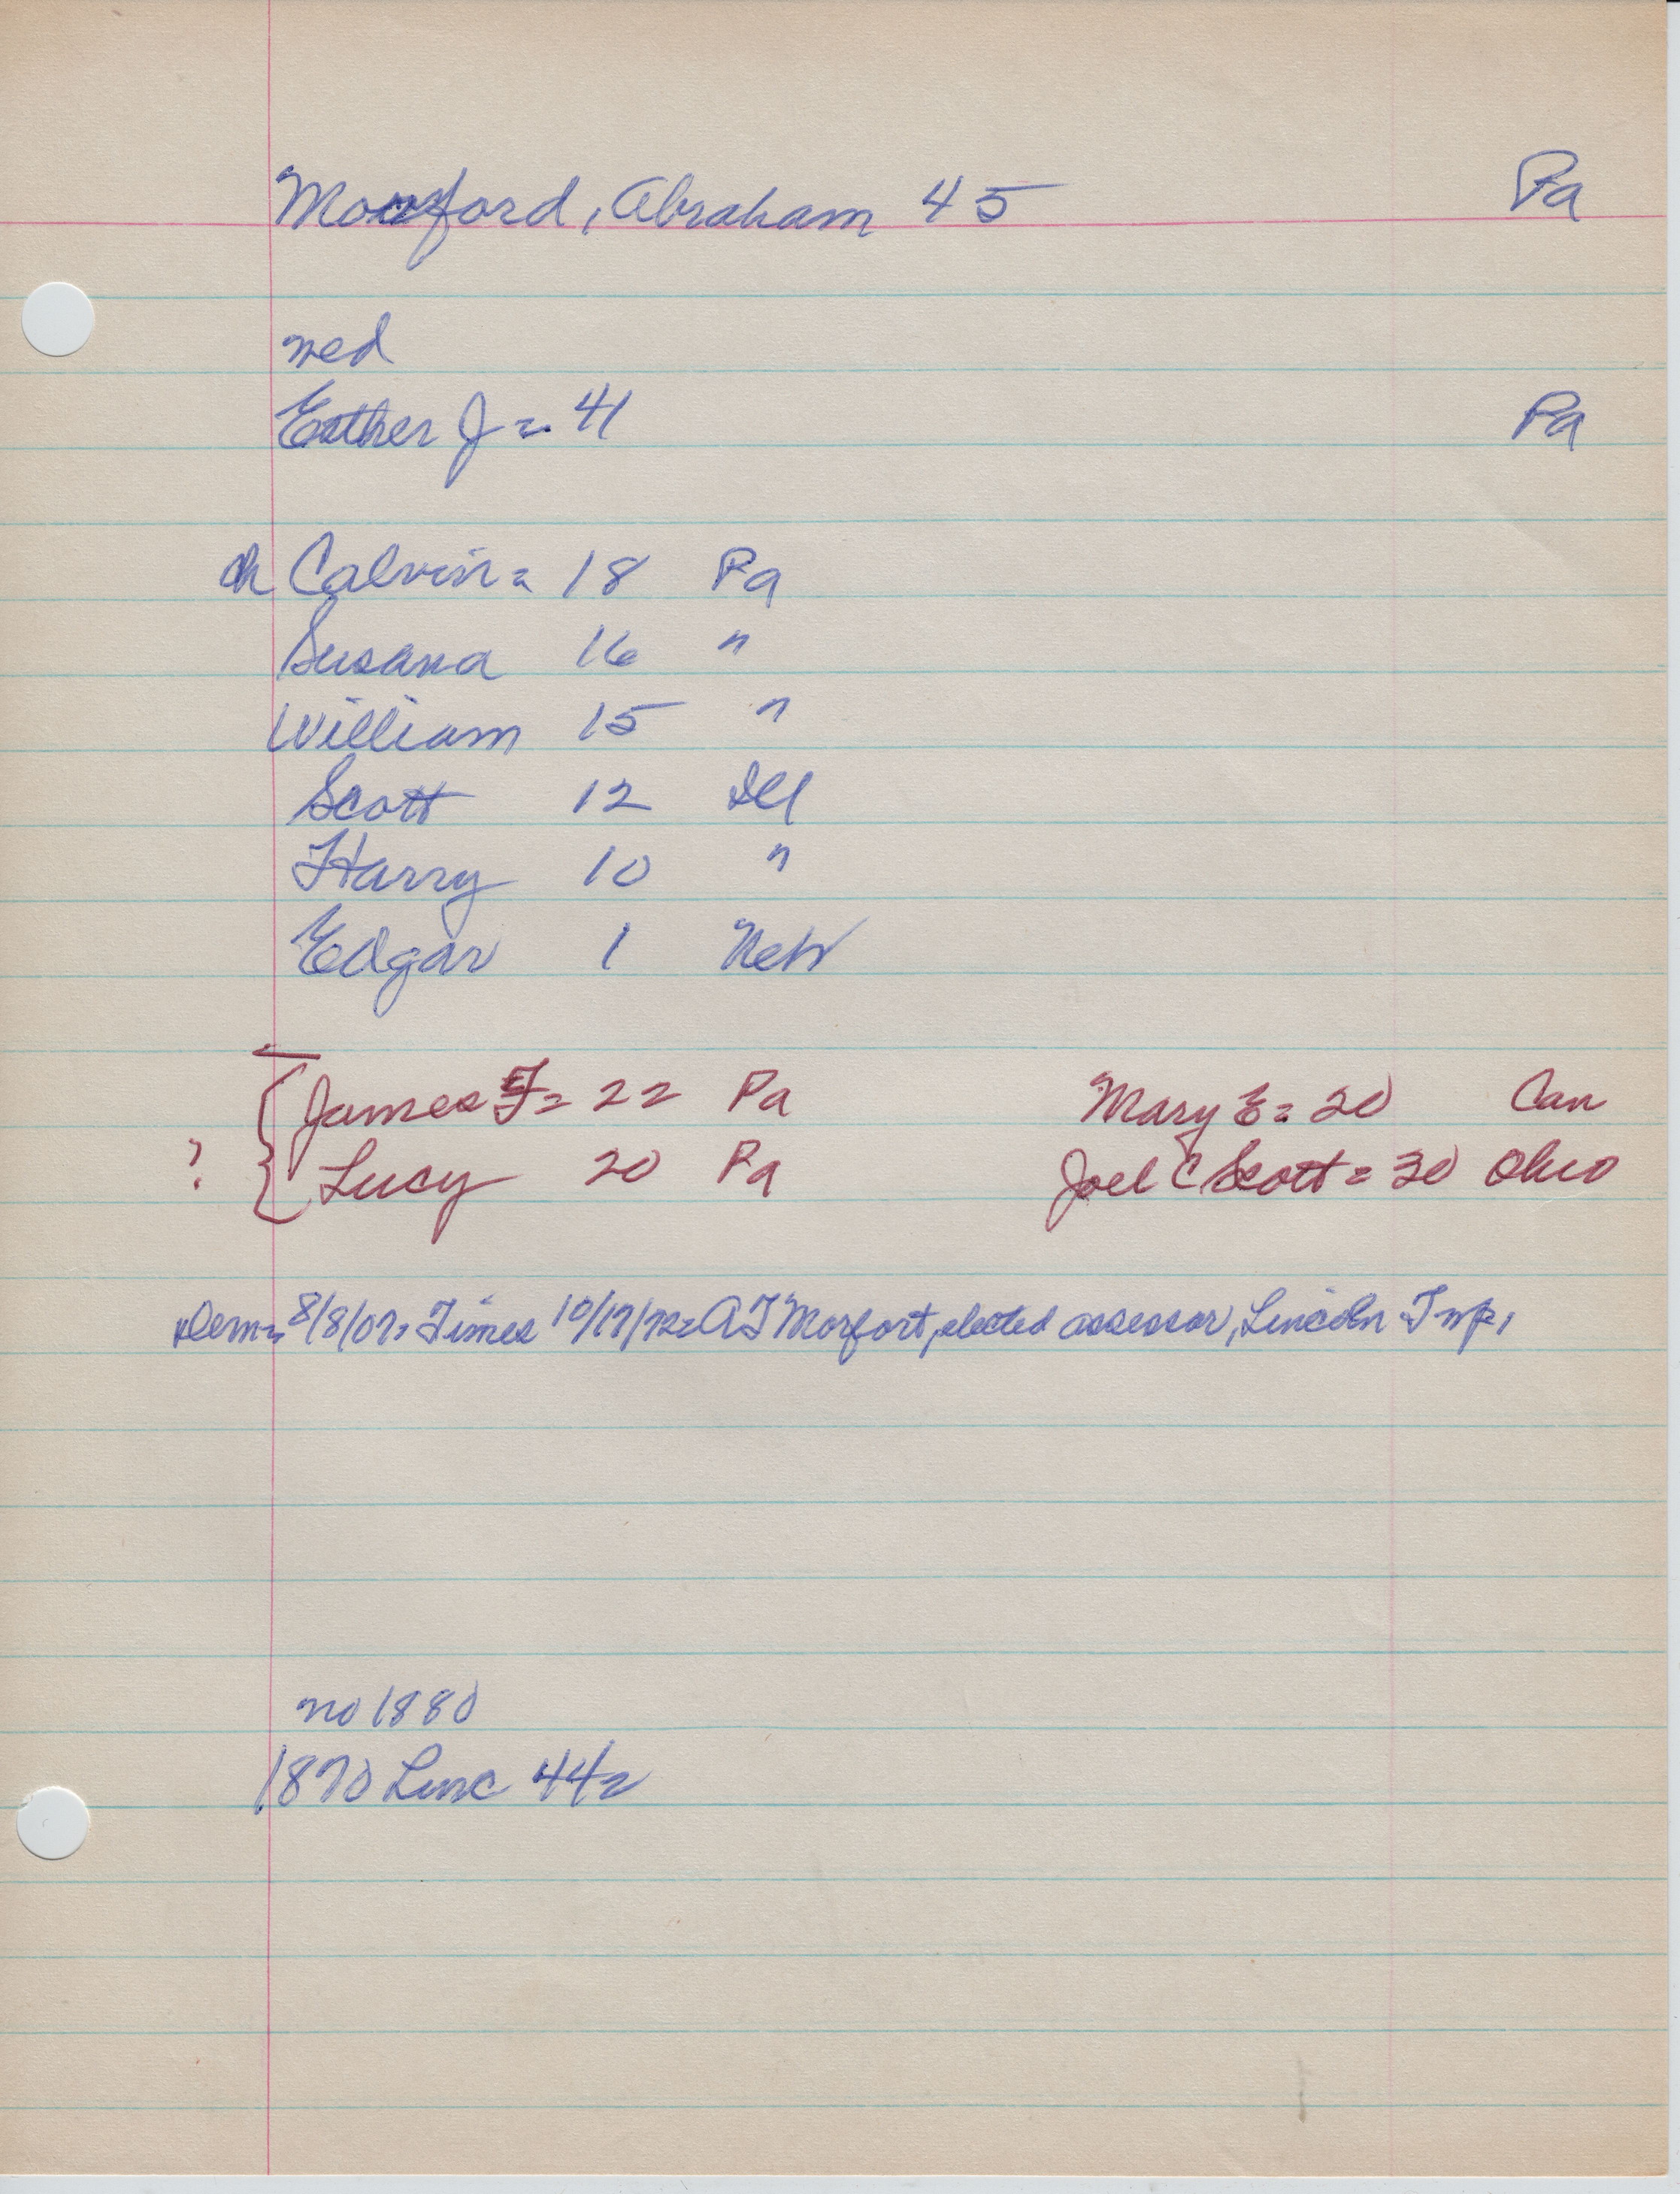 Morford, Abraham 45 Pa
med
Esther J = 41 Pa
ch Calvin = 18 Pa
Susana 16 "
William 15 "
Scott 12 Ill
Harry 10 "
Edgar 1 Neb
{ James F = 22 Pa Mary E = 20 Can
? { Lucy 20 Pa Joel C Scott = 30 Ohio
Dem = 8/8/07 = Times 10/17/72 = A J Morfort, elected assessor, Lincoln Twp.
no 1880
1870 Linc 442